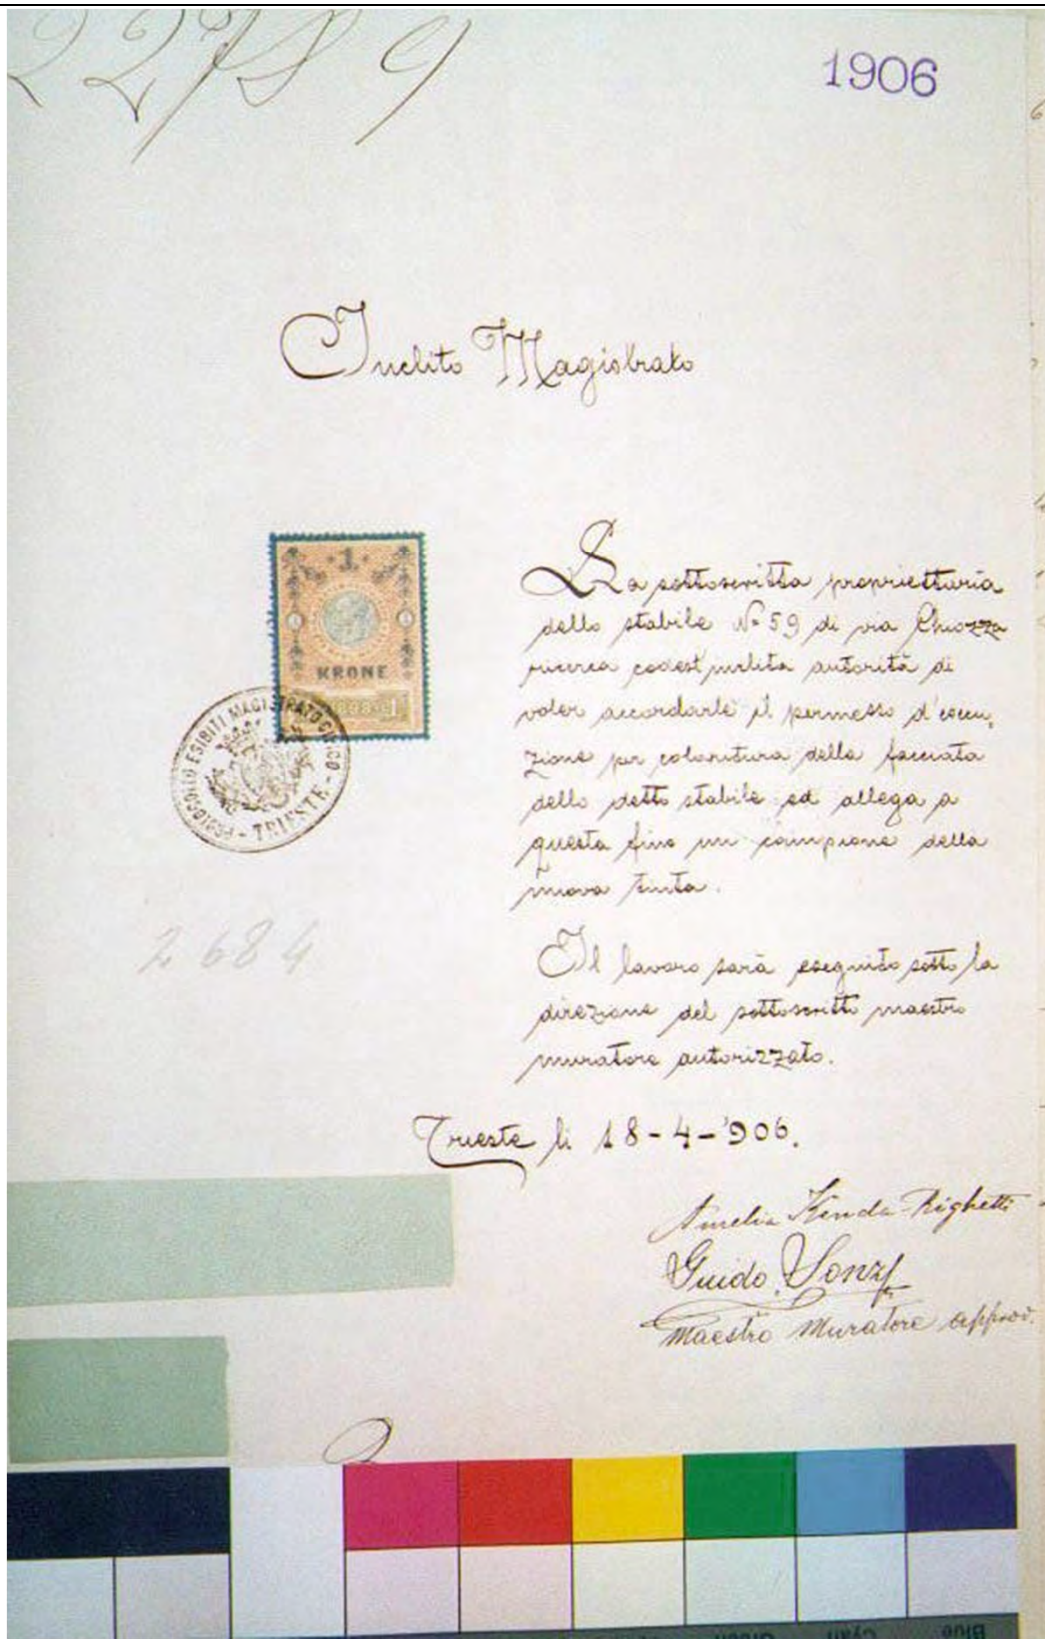 1906
Inclito Magistrato
1
KRONE
PROTOCOLLO ESIBITI MAGISTRATO CIVICO - TRIESTE -
La sottoscritta propriettaria
dello stabile No 59 di via Chiozza
ricerca codest'inclita autorità di
voler accordarle il permesso d'esecu,
zione per coloritura della facciata
dello detto stabile ed allega a
questo fine un campione della
nuova tinta.
2684
Il lavoro sarà eseguito sotto la
direzione del sottoscritto maestro
muratore autorizzato.
Trieste li 18-4-906.
Amelia Kenda-Righetti
Guido
Maestro Muratore approv.
Green Cyan Blue